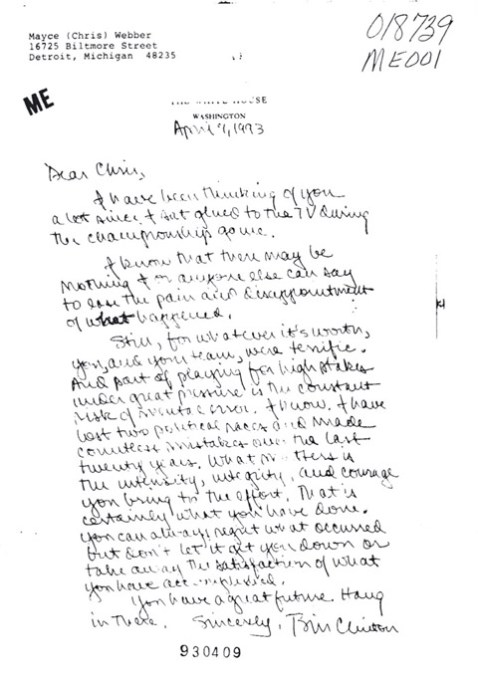 Mayce (Chris) Webber
16725 Biltmore Street
Detroit, Michigan 48235
018739
ME001
ME
THE WHITE HOUSE
WASHINGTON
April 9, 1993
Dear Chris,
I have been thinking of you
a lot since I sat glued to the TV during
the championship game.
I know that there may be
nothing I or anyone else can say
to ease the pain and disappointment
of what happened.
Still, for whatever it's worth,
you, and your team, were terrific.
And part of playing for high stakes
under great pressure is the constant
risk of mental error. I know. I have
lost two political races and made
countless mistakes over the last
twenty years. What matters is
the intensity, integrity, and courage
you bring to the effort. That is
certainly what you have done.
You can always regret what occurred
but don't let it get you down or
take away the satisfaction of what
you have accomplished.
You have a great future. Hang
in there. Sincerely, Bill Clinton
930409